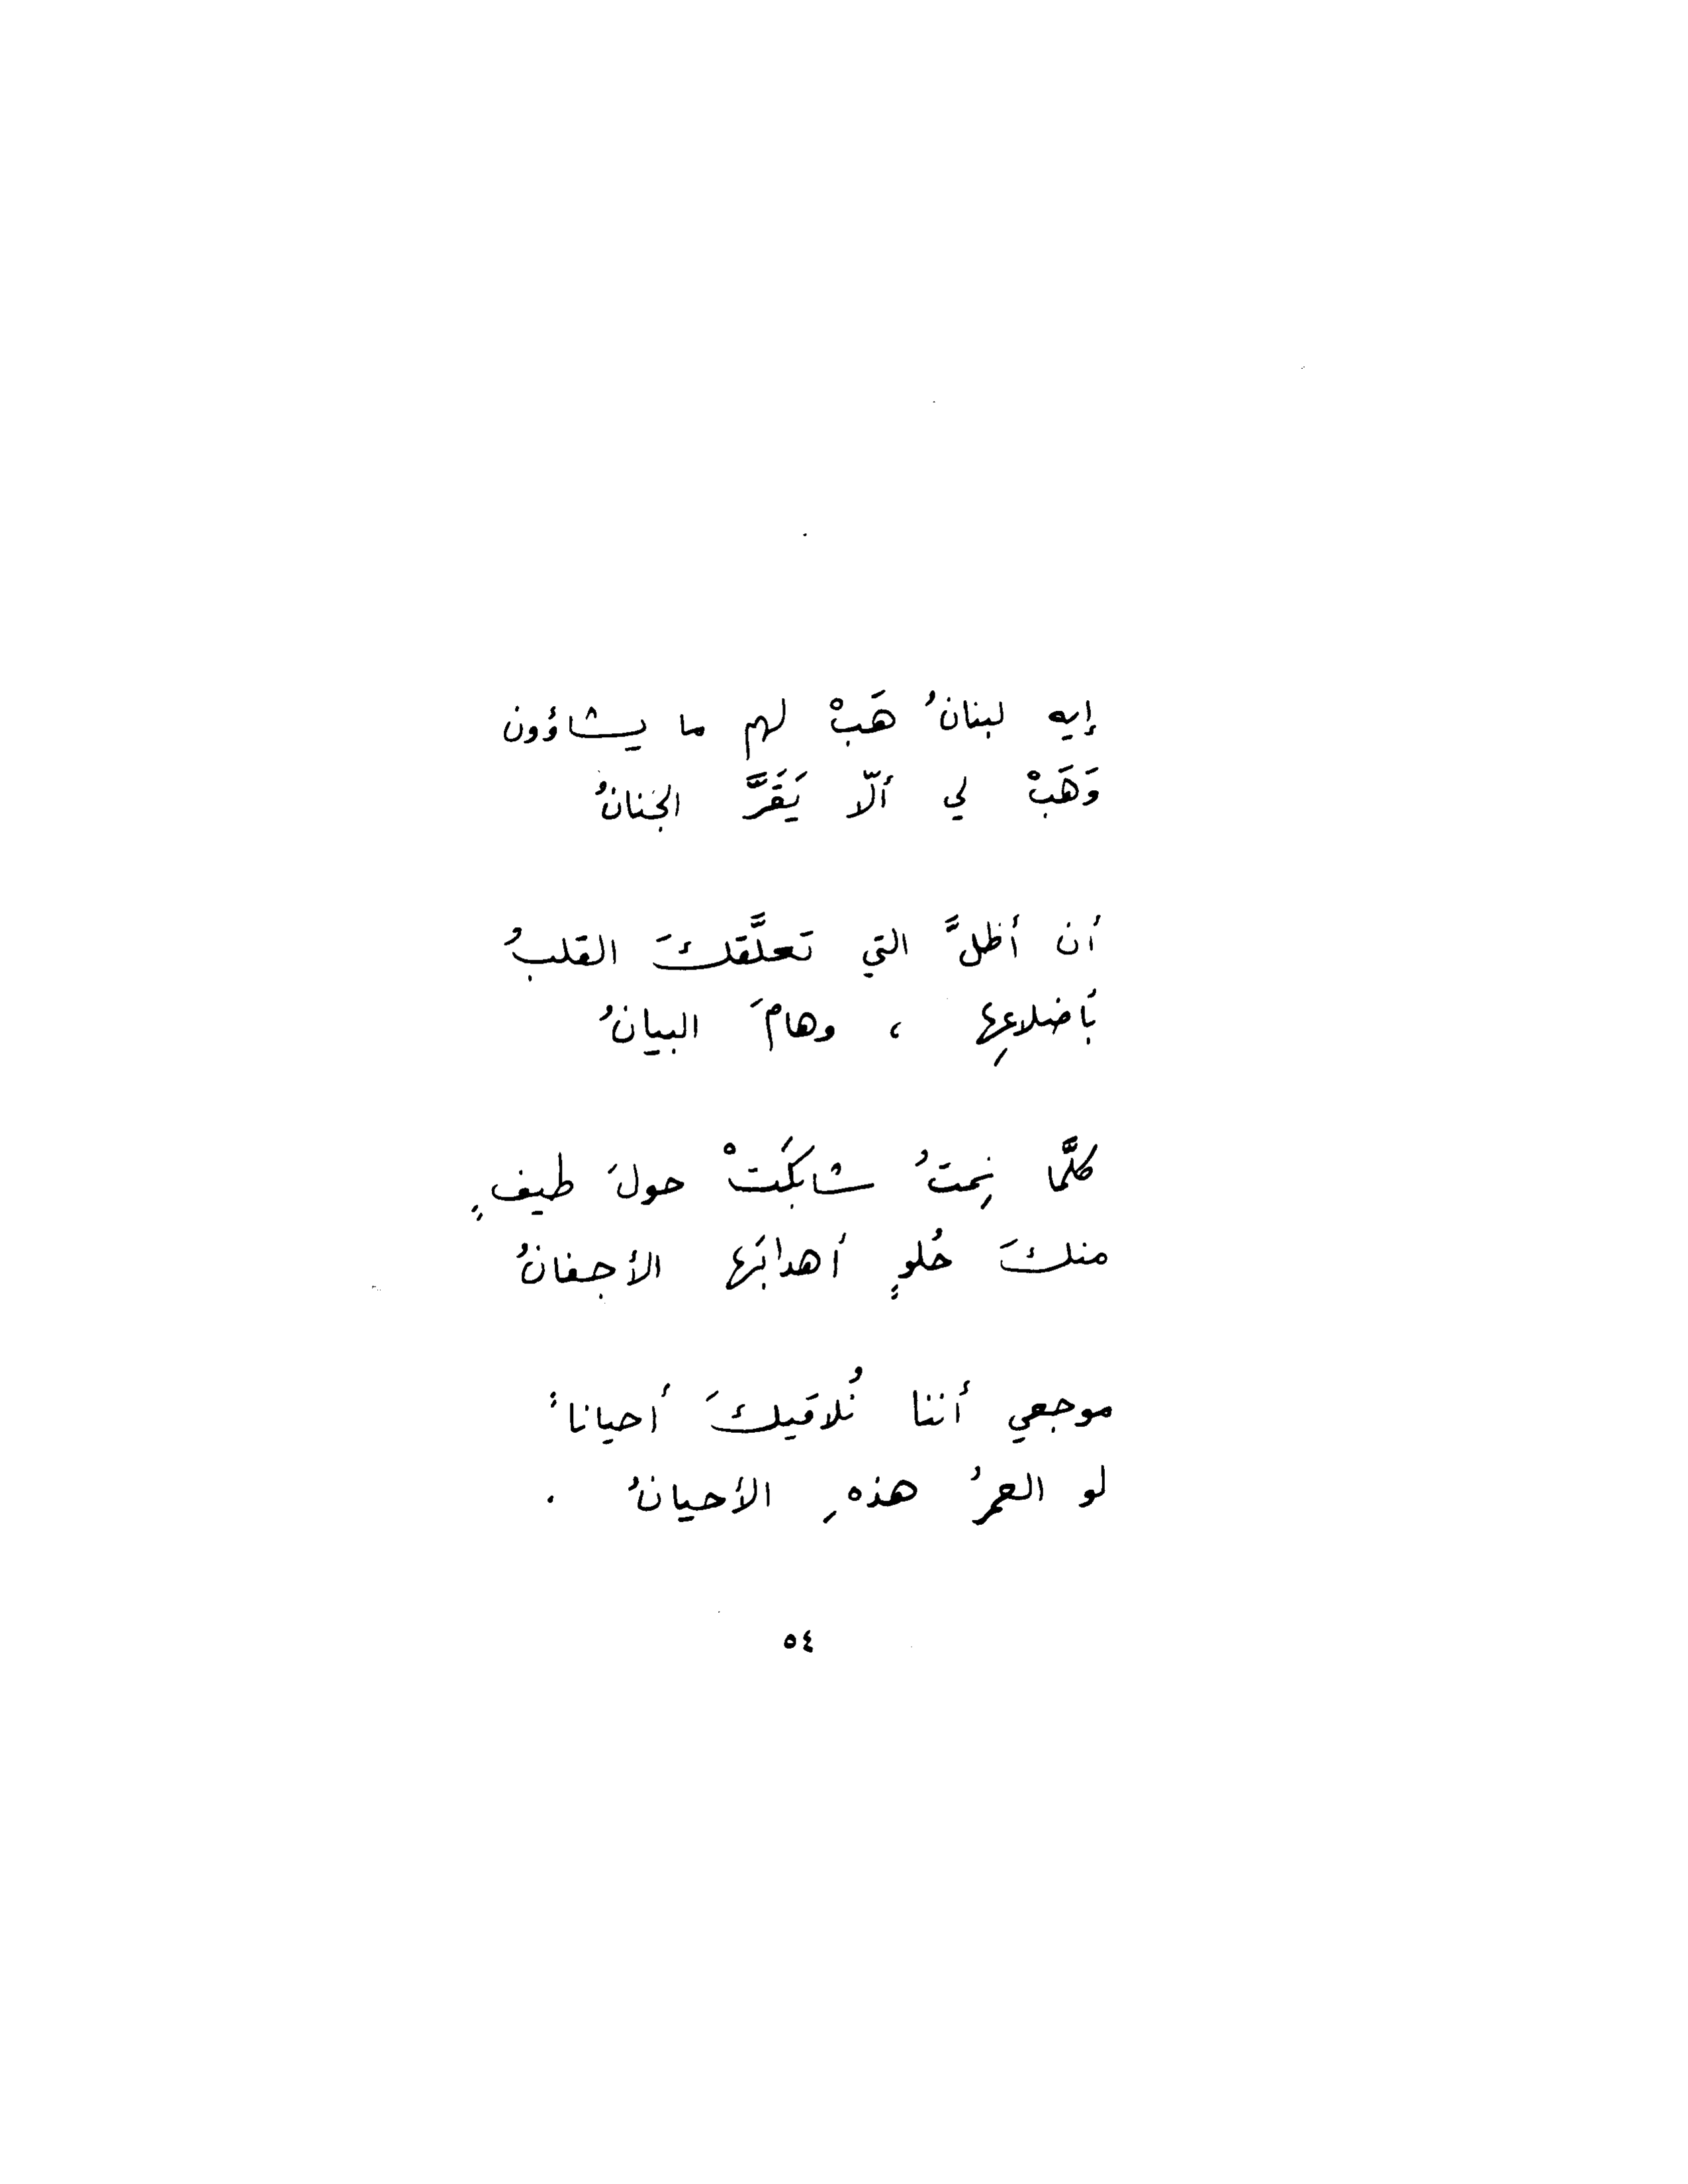 إيه لبنانُ هَبْ لهم ما يشاؤون
وَهَبْ لي ألّا يَقَرَّ الجَنانُ
أن أظلَّ التي تعلَّقكَ القلبُ
بأضلاعِها ، وهامَ البيانُ
كلَّما نِمتُ شابكَتْ حولَ طيفٍ
منكَ حُلوٍ أهدابَها الأجفانُ
موجعي أننا نُلاقيكَ أحياناً
لو العمرُ هذهِ الأحيانُ .
٥٤